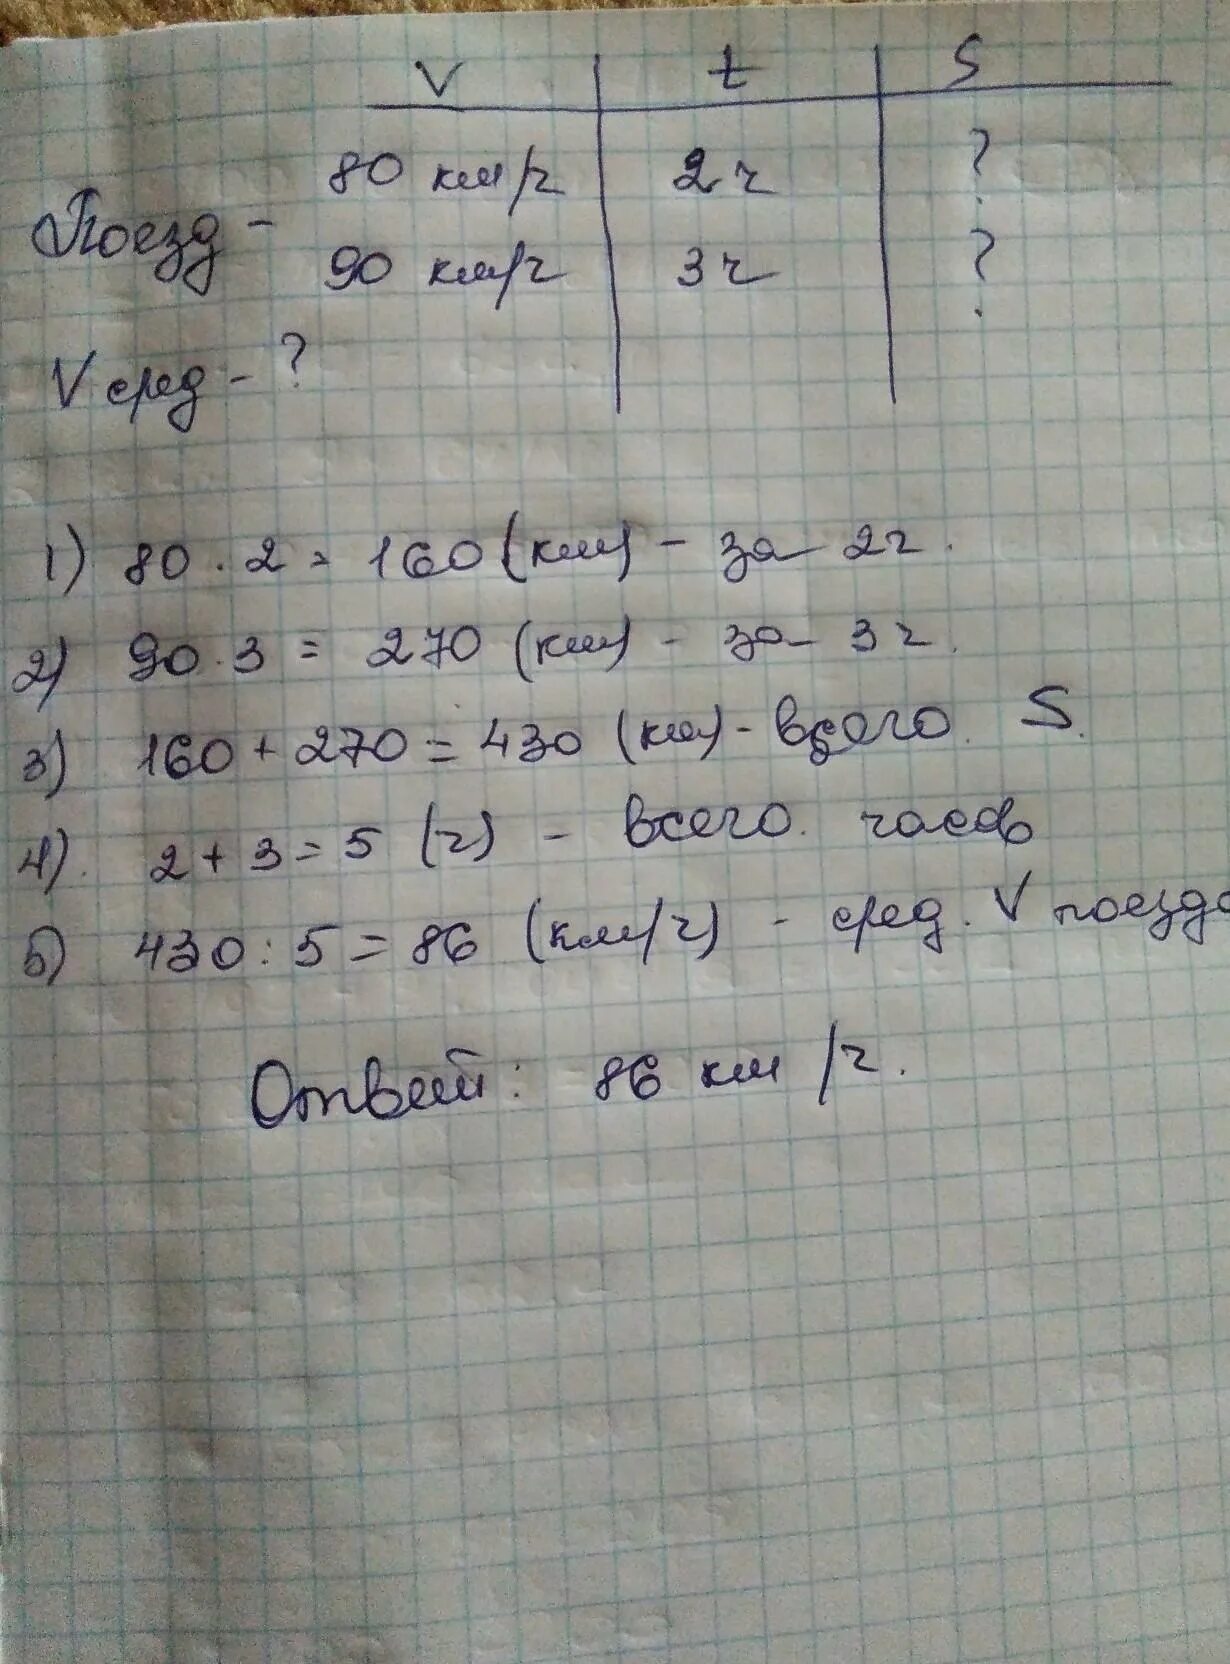 V t S
80 км/ч 2 ч ?
Поезд -
90 км/ч 3 ч ?
V сред - ?
1) 80 · 2 = 160 (км) - за 2 ч.
2) 90 · 3 = 270 (км) - за 3 ч.
3) 160 + 270 = 430 (км) - всего. S.
4). 2 + 3 = 5 (ч) - всего. часов
5) 430 : 5 = 86 (км/ч) - сред. V поезда
Ответ: 86 км/ч.